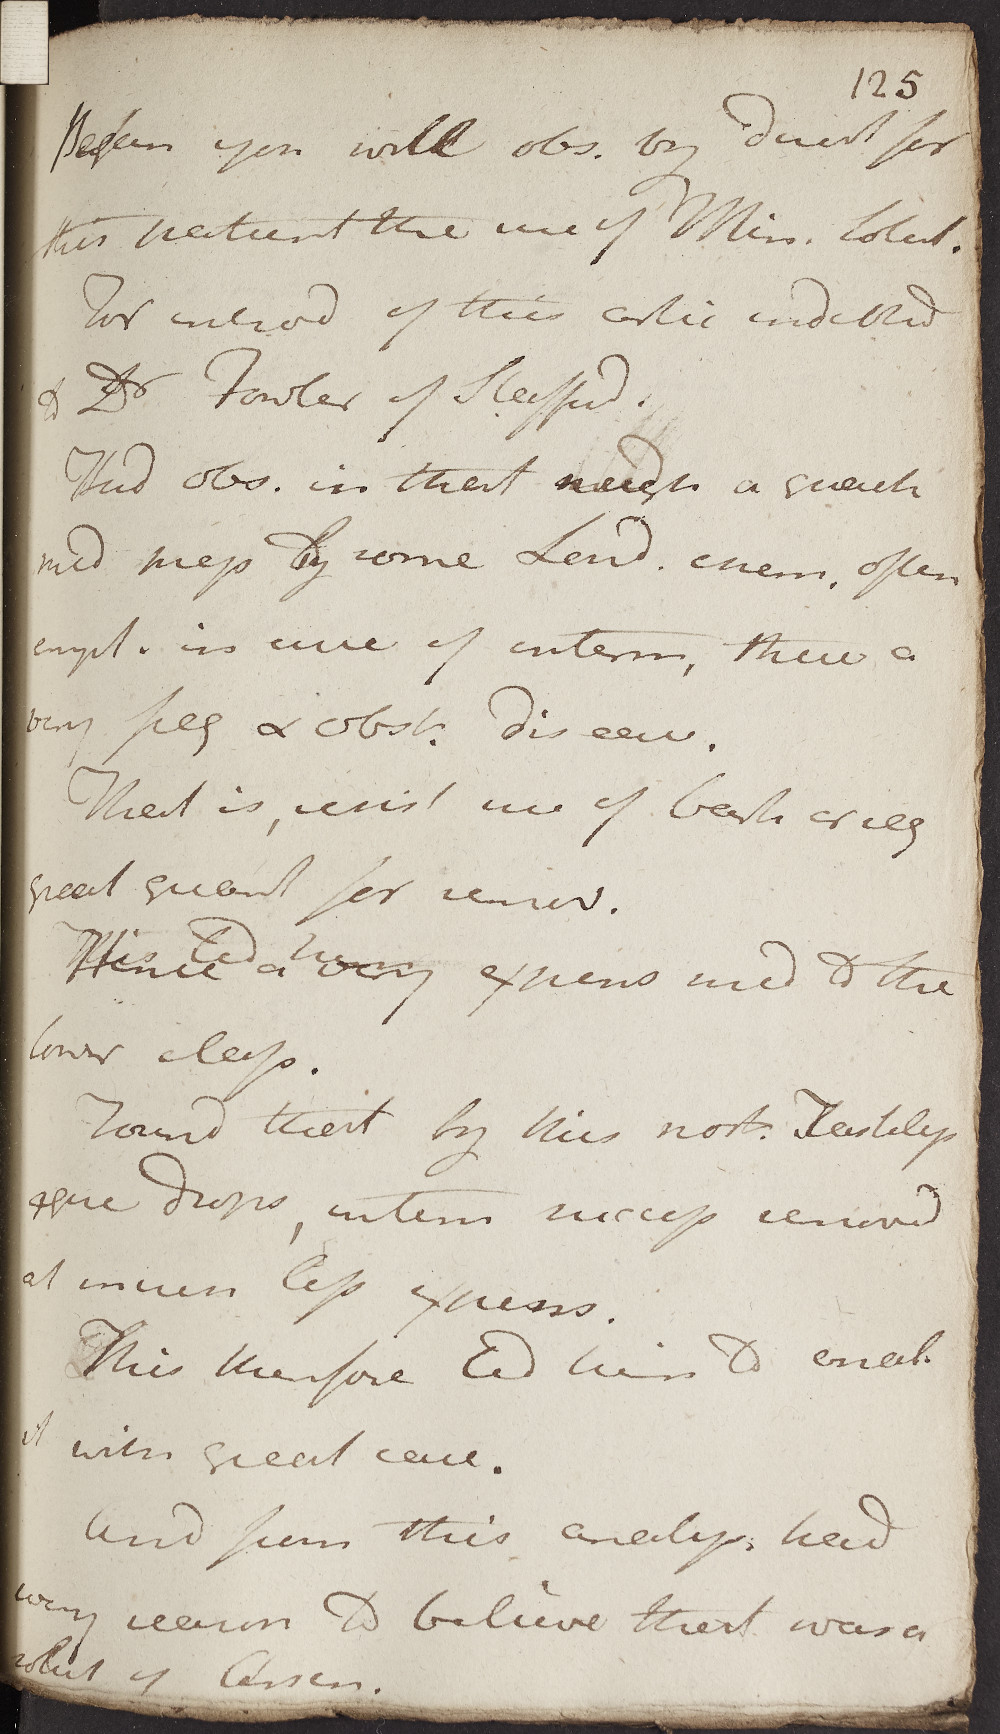 125
Began you will obs. by direct for
this patient the use of Min. Solut.
For introd of this artic indebted
to Dr Fowler of Stafford.
Had obs. in that neigh a quack
med prep by some Lond. chem. often
empl. in cure of interm, there a
very freq & obst. disease.
That is, resist use of bark or req
great quant for remov.
This led him
Hence a very expens med to the
lower class.
Found that by this nost. Tasteless
ague drops, intem success removd
at much less expens.
This therefore led him to anal.
it with great care.
And from this analys. had
every reason to believe that was a
solut of Arsen.